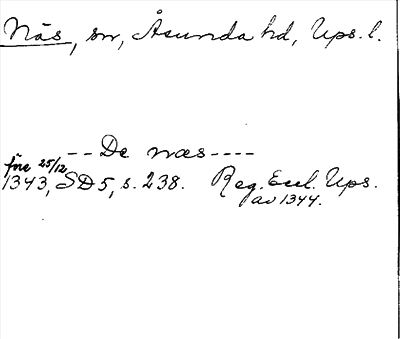 Näs, sn, Åsunda hd, Ups. l.
-- De næs ----
före 25/12
1343, SD 5, s. 238. Reg. Eccl. Ups.
av 1344.